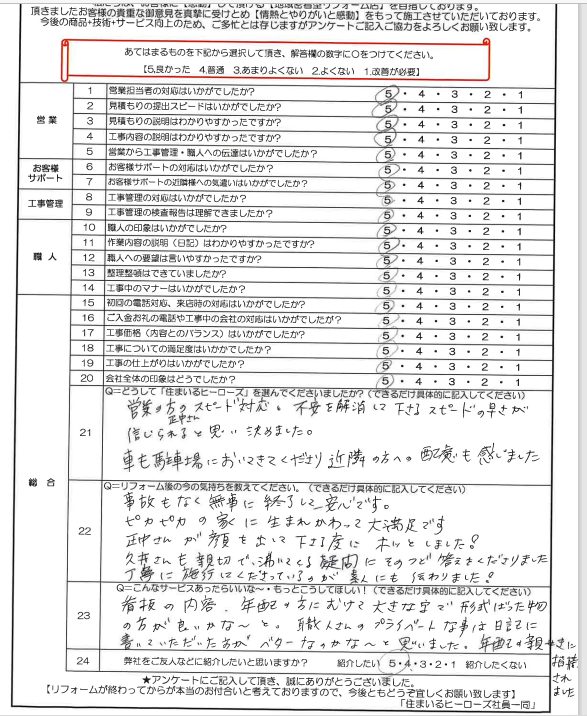 頂きましたお客様の貴重な御意見を真摯に受けとめ【情熱とやりがいと感動】をもって施工させていただいております。
今後の商品+技術+サービス向上のため、ご多忙とは存じますがアンケートご記入ご協力をよろしくお願い致します。
あてはまるものを下記から選択して頂き、解答欄の数字に○をつけてください。
【5.良かった 4.普通 3.あまりよくない 2.よくない 1.改善が必要】
営業
1 営業担当者の対応はいかがでしたか? 5・4・3・2・1
2 見積もりの提出スピードはいかがでしたか? 5・4・3・2・1
3 見積もりの説明はわかりやすかったですか? 5・4・3・2・1
4 工事内容の説明はわかりやすかったですか? 5・4・3・2・1
5 営業から工事管理・職人への伝達はいかがでしたか? 5・4・3・2・1
お客様サポート
6 お客様サポートの対応はいかがでしたか? 5・4・3・2・1
7 お客様サポートの近隣様への気遣いはいかがでしたか? 5・4・3・2・1
工事管理
8 工事管理の対応はいかがでしたか? 5・4・3・2・1
9 工事管理の検査報告は理解できましたか? 5・4・3・2・1
職人
10 職人の印象はいかがでしたか? 5・4・3・2・1
11 作業内容の説明(日記)はわかりやすかったですか? 5・4・3・2・1
12 職人への要望は言いやすかったですか? 5・4・3・2・1
13 整理整頓はできていましたか? 5・4・3・2・1
14 工事中のマナーはいかがでしたか? 5・4・3・2・1
総合
15 初回の電話対応、来店時の対応はいかがでしたか? 5・4・3・2・1
16 ご入金お礼の電話や工事中の会社の対応はいかがでしたか? 5・4・3・2・1
17 工事価格(内容とのバランス)はいかがでしたか? 5・4・3・2・1
18 工事についての満足度はいかがでしたか? 5・4・3・2・1
19 工事の仕上がりはいかがでしたか? 5・4・3・2・1
20 会社全体の印象はどうでしたか? 5・4・3・2・1
21 Q=どうして「住まいるヒーローズ」を選んでくださいましたか?(できるだけ具体的に記入してください)
営業の方のスピード対応。不安を解消して下さるスピードの早さが
正中さん
信じられると思い決めました。
車も駐車場においてきてくださり近隣の方への配慮も感じました
22 Q=リフォーム後の今の気持ちを教えてください。(できるだけ具体的に記入してください)
事故もなく無事に終了して安心です。
ピカピカの家に生まれかわって大満足です
正中さんが顔を出して下さる度にホッとしました!
久井さんも親切で、沸いてくる疑問にそのつど答えをくださりました
丁寧に施行してくださっているのが素人にも伝わりました!
23 Q=こんなサービスあったらいいな~・もっとこうしてほしい!(できるだけ具体的に記入してください)
看板の内容、年配の方にむけて大きな字で形式ばった物
の方が良いかな~と。職人さんのプライベートな事は日記に
書いていただいた方がベターなのかな~と思いました。年配の親せきに
指摘
され
ました
24 弊社をご友人などに紹介したいと思いますか? 紹介したい 5・4・3・2・1 紹介したくない
★アンケートにご記入して頂き、誠にありがとうございました。
【リフォームが終わってからが本当のお付合いと考えておりますので、今後ともどうぞ宜しくお願い致します】
「住まいるヒーローズ社員一同」